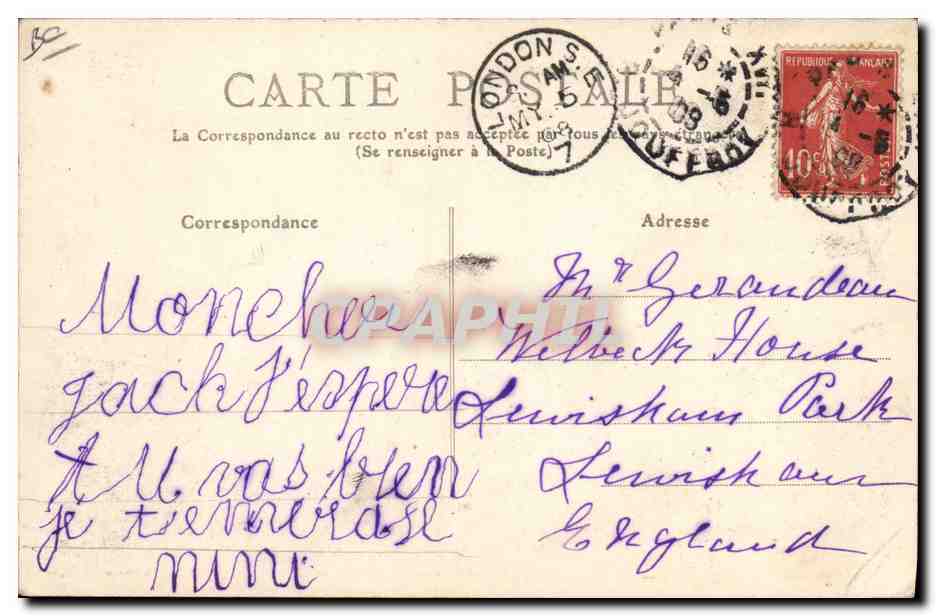 BC
CARTE POSTALE
La Correspondance au recto n'est pas acceptée par tous les pays étrangers
(Se renseigner à la Poste)
LONDON S.E.
AM
MY 5
09
7
16 *
4 - 5
09
REPUBLIQUE FRANÇAISE
10c POSTES
Correspondance
Adresse
Moncher
jack J'espere
tu vas bien
je t'enmbrase
nini
Mr Gerandeau
Welbeck House
Lewisham Park
Lewisham
England
CPAPHIL